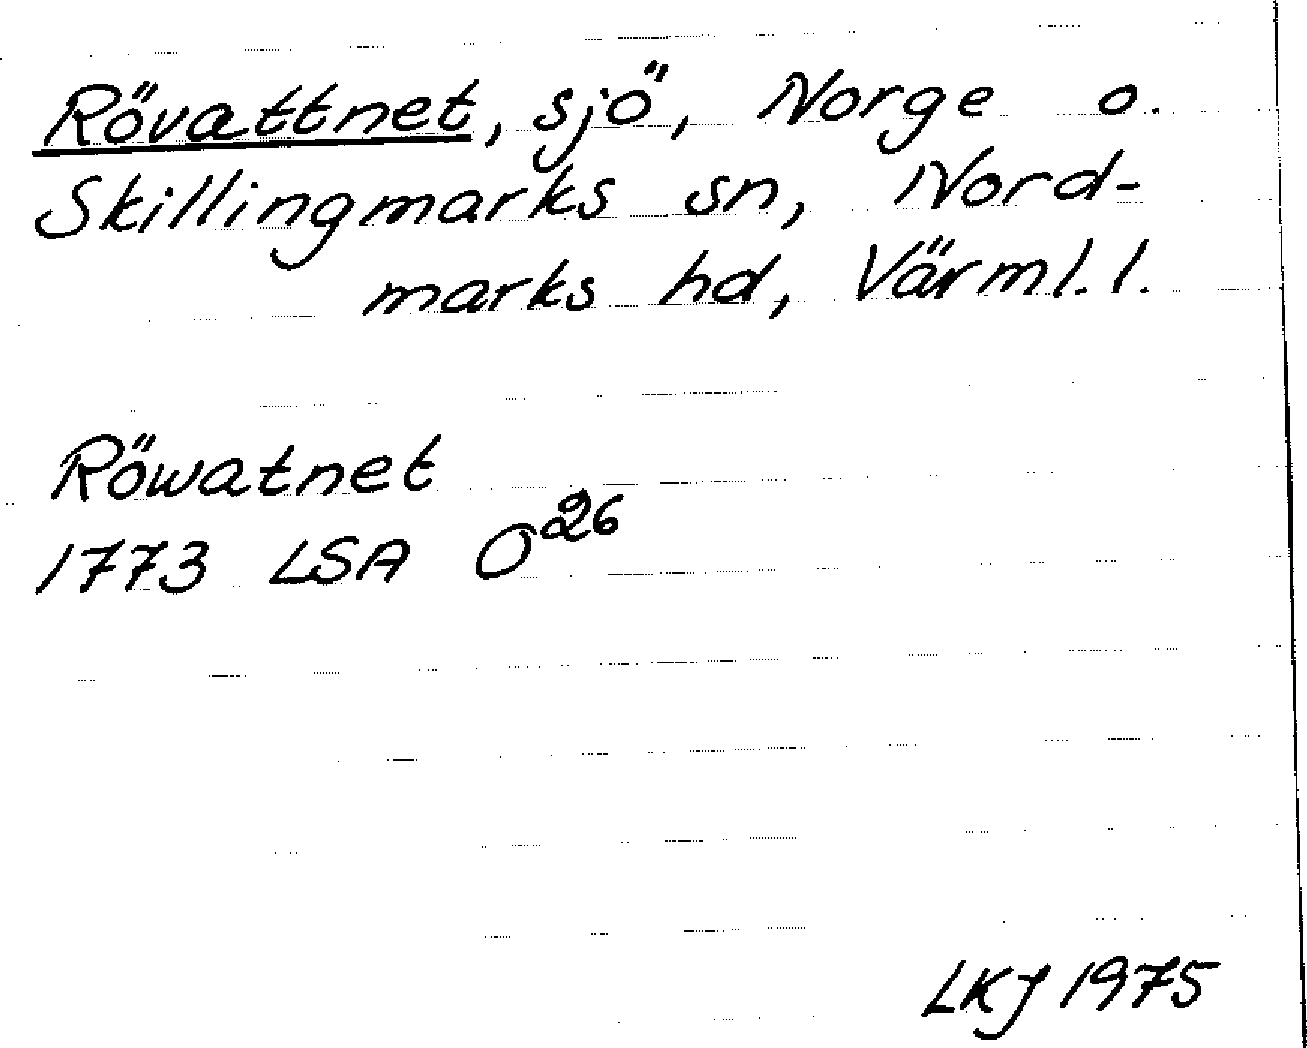 Rövattnet, sjö, Norge o.
Skillingmarks sn, Nord-
marks hd, Värml. l.
Röwatnet
1773 LSA O26
LKJ 1975